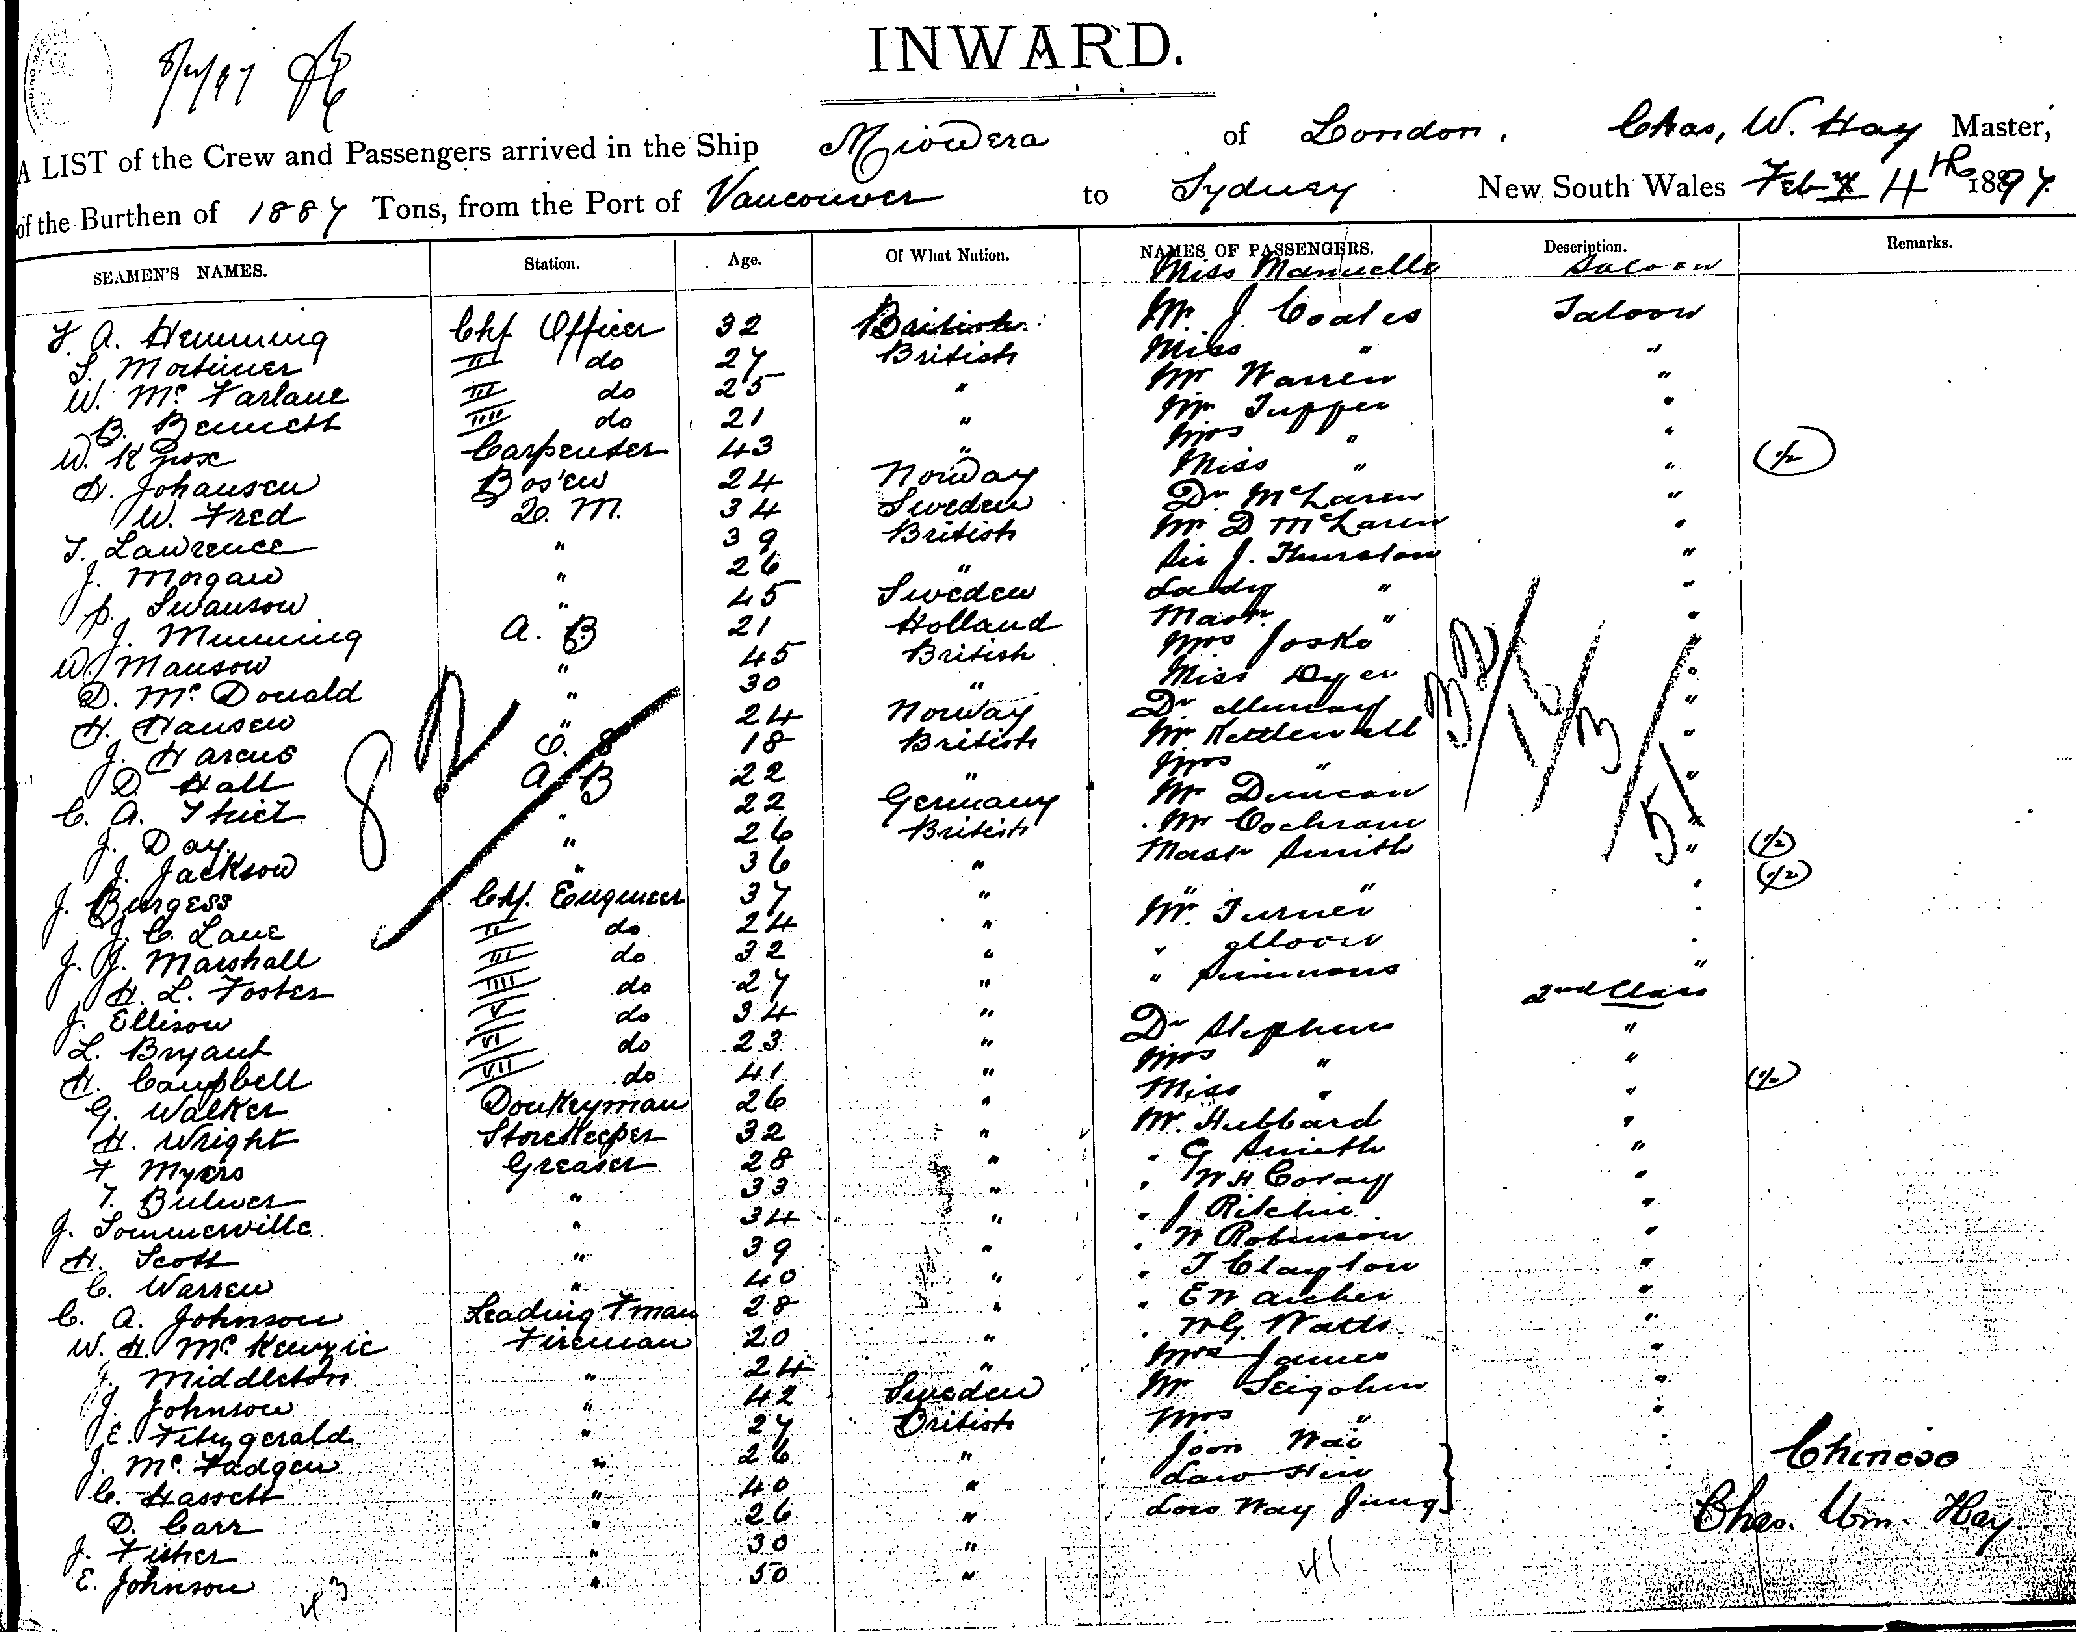 INWARD.
8/2/97
A LIST of the Crew and Passengers arrived in the Ship Miowera of London. Chas, W. Hay Master,
of the Burthen of 1887 Tons, from the Port of Vancouver to Sydney New South Wales Feb 4th 1897.
SEAMEN'S NAMES. Station. Age. Of What Nation. NAMES OF PASSENGERS. Description. Remarks.
Miss Manuelle Saloon
F. A. Hemming Chf Officer 32 British Mr. J. Coates Saloon
S. Mortimer II do 27 British Miss " "
W. Mc Farlane III do 25 " Mr Warren "
B. Bennett IIII do 21 " Mr Tupper "
W. Knox Carpenter 43 " Mrs " "
H. Johansen Bos'en 24 Norway Miss " " (1/2)
W. Fred Q. M. 34 Sweden Dr McLaren "
T. Lawrence " 39 British Mr D McLaren "
J. Morgan " 26 " Sir J. Thurston "
P. Swanson " 45 Sweden Lady " "
J. Mimming A. B 21 Holland Mast. " "
W. Manson " 45 British Mrs Joske "
D. Mc Donald " 30 " Miss Dyer "
H. Hansen " 24 Norway Dr Murray "
J. Harcus O. S 18 British Mr Kettlewell "
D Hall A. B 22 " Mrs " "
C. A. Thiel " 22 Germany Mr Duncan "
J. Day " 26 British Mr Cochrane "
J. Jackson " 36 " Mast Smith " (1/2)
J. Burgess Chf. Engineer 37 " " " " (1/2)
J. C. Lane II do 24 " Mr. Turner "
J. J. Marshall III do 32 " " Moore "
H. L. Foster IIII do 27 " " Simmons "
2nd Class
J. Ellison V do 34 " Dr Stephens "
L. Bryant VI do 23 " Mrs " "
H. Campbell VII do 41 " Miss " " (1/2)
G. Walker Donkeyman 26 " Mr. Hubbard "
H. Wright Storekeeper 32 " " G Smith "
F Myers Greaser 28 " " W H Coray "
T. Bulwer " 33 " " J Ritchie "
J. Sommerville " 34 " " W Robinson "
H. Scott " 39 " " T Clayton "
C. Warren " 40 " " E W Archer "
C. A. Johnson Leading Fman 28 " " W G Watts "
W. H. Mc Kenzie Fireman 20 " Mrs James "
J. Middleton " 24 " Mr "
J. Johnson " 42 Sweden Mrs " "
E. Fitzgerald " 27 British Joon Wai
J. Mc Fadgen " 26 " Law Hin Chinese
C. Hassett " 40 " Low Way Jung
D. Carr " 26 " Chas. Wm. Hay
J. Fisher " 30 "
E. Johnson " 50 "
43 41
82 32/16/3/51